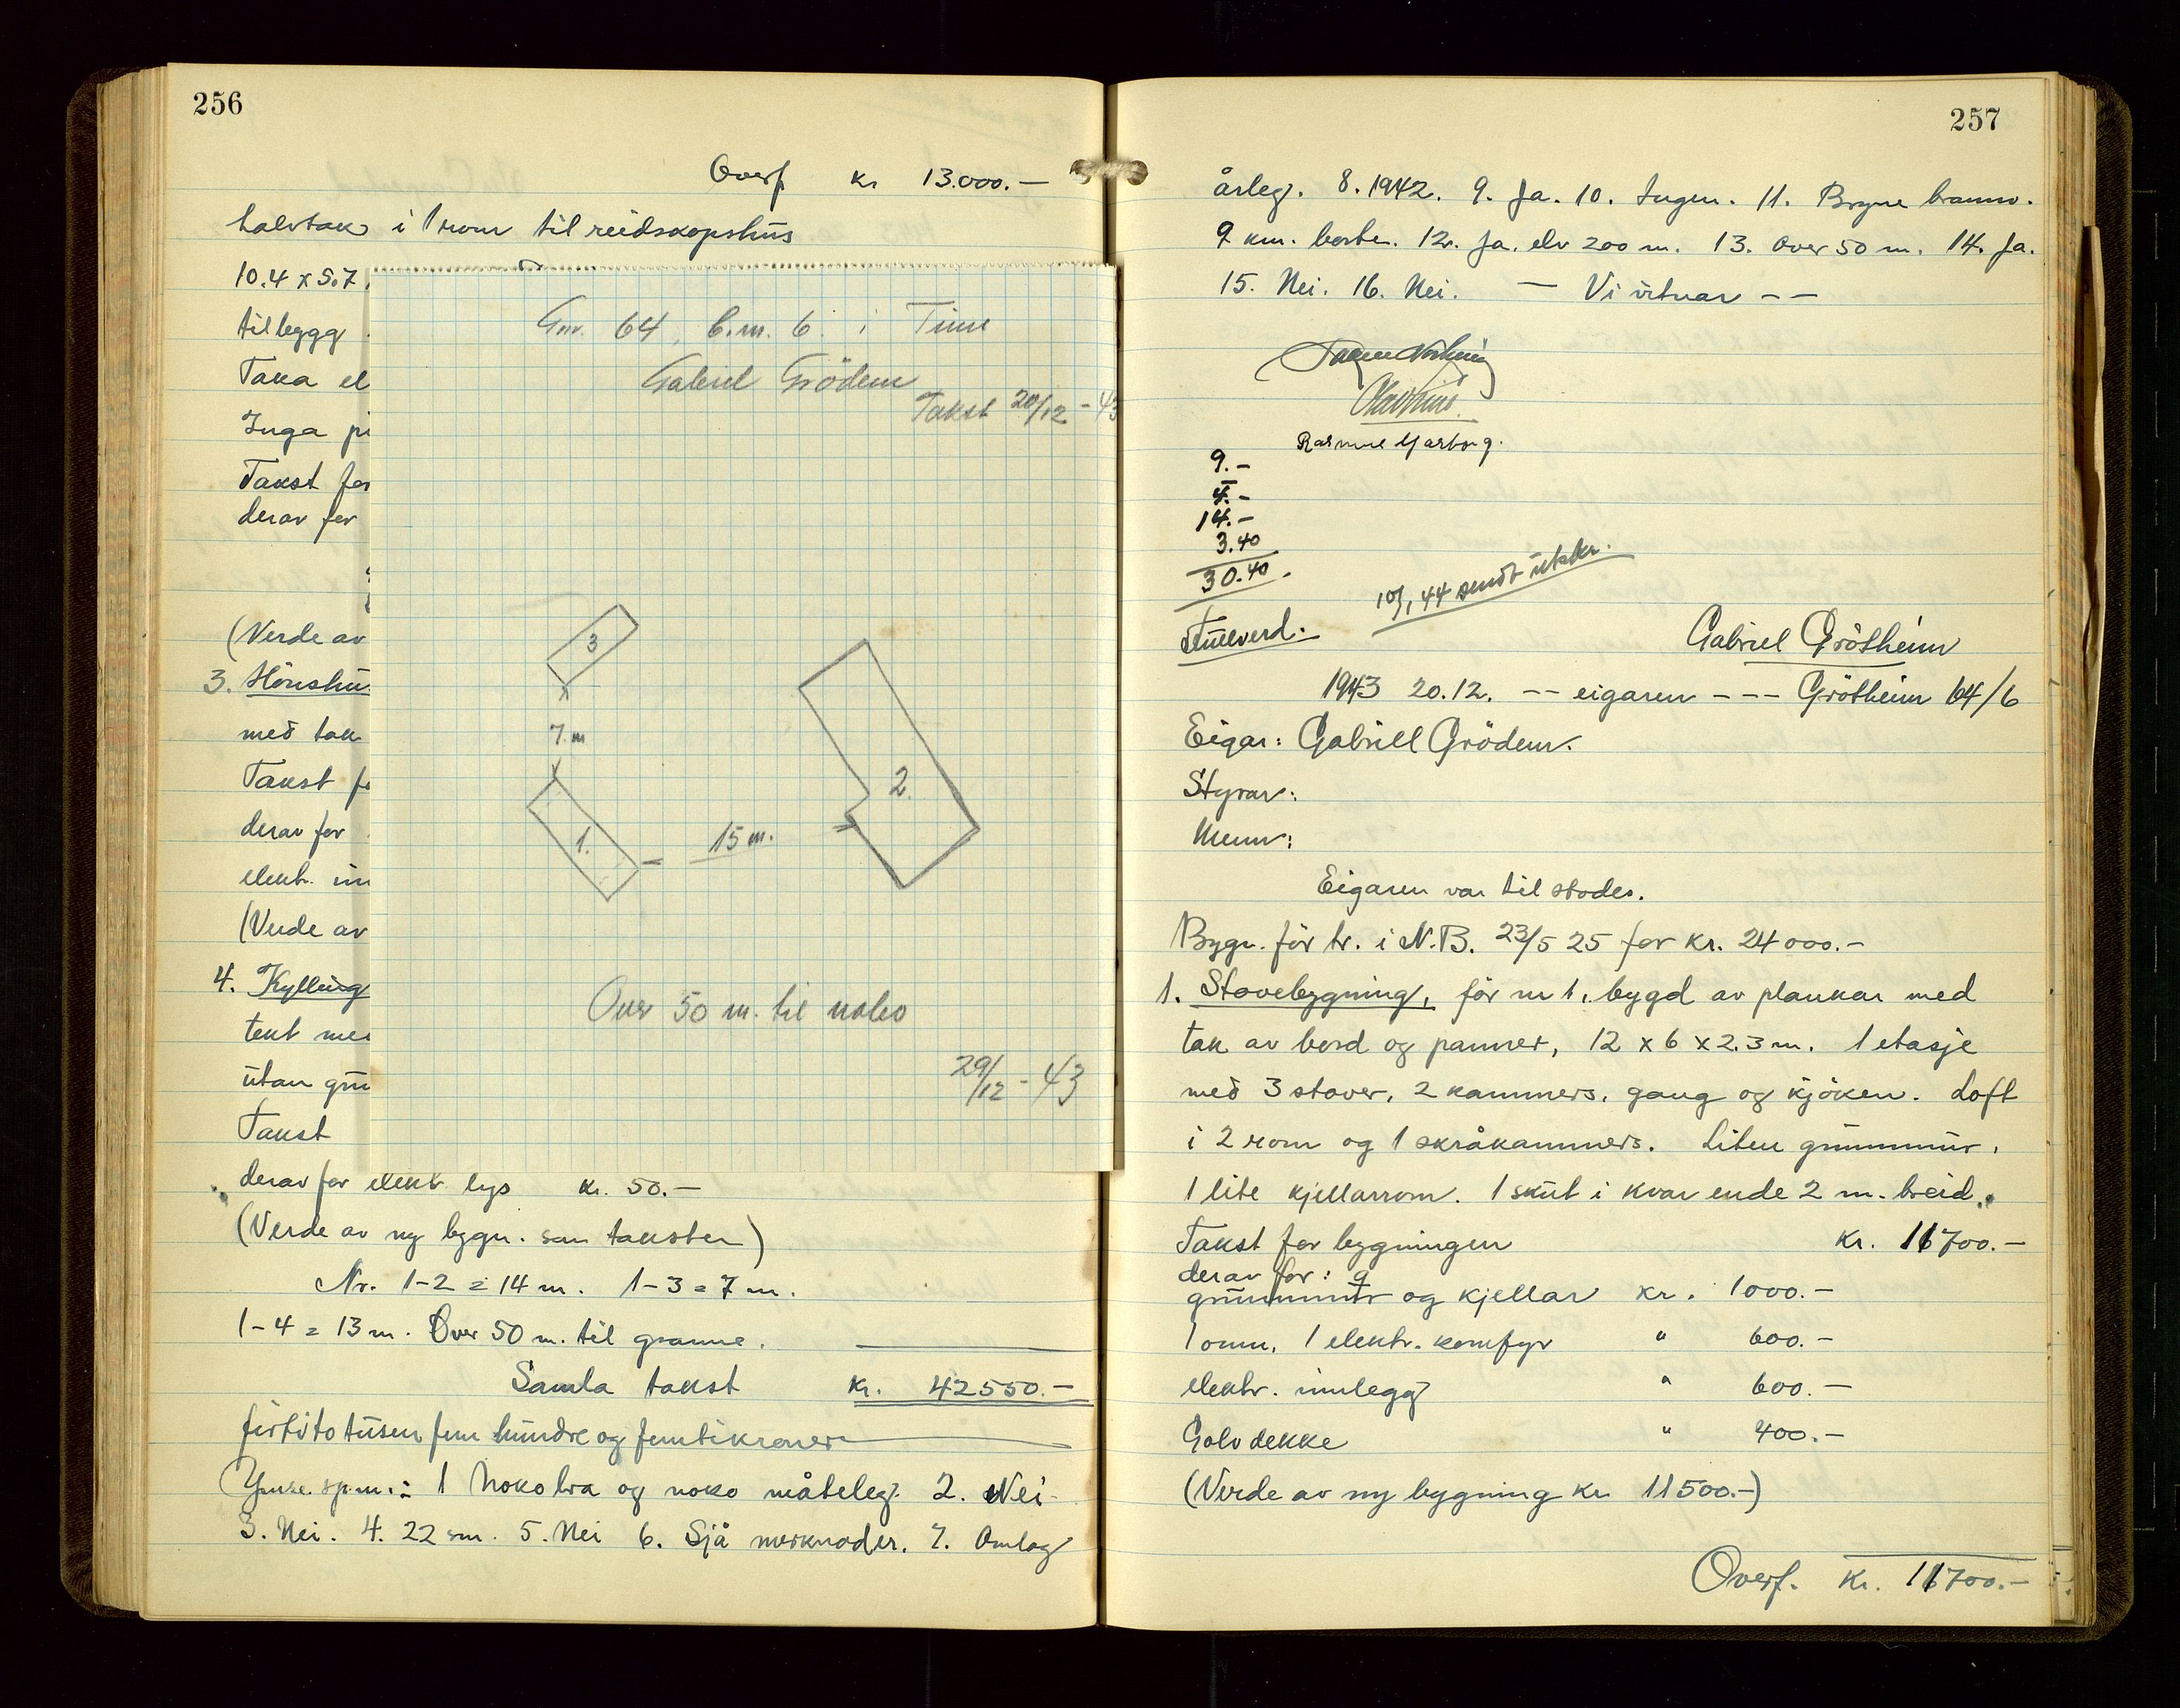 256
Overf kr 13.000.—
halvtak i 1 rom til reidskapshus
10.4 x 5.7
tilbygg
Taka el
Inga pi
Takst for
derav for
(Verde av
3. Hönshu
med tak
Takst fo
derav for
elektr. inn
(Verde av
4. Kylling
tekt med
utan gru
Takst
derav for elektr lys kr. 50.—
(Verde av ny bygn. som taksten)
Nr. 1-2 = 14 m. 1-3 = 7 m.
1-4 = 13 m. Over 50 m. til granne.
Samla takst kr. 42550.—
førtito tusen fem hundre og femti kroner
Ymse sp.m.: 1 Noko bra og noko måteleg. 2. Nei
3. Nei. 4. 22 sm. 5. Nei 6. Sjå merknader. 7. Omlag
Gnr. 64, b.nr. 6 i Time
Gabriel Grödem
Takst 20/12 - 43
3
7 m
1.
15 m.
2.
Over 50 m. til nabo
29/12 - 43
257
årleg. 8. 1942. 9. Ja. 10. Ingen. 11. Bryne brannv.
9 km. borte. 12. Ja. elv 200 m. 13. Over 50 m. 14. Ja.
15. Nei. 16. Nei. — Vi vitnar — —
Rasmus Garborg.
9.—
4.—
14.—
3.40
30.40
44 sendt utskr.
Fullverd. Gabriel Grötheim
1943 20.12. -- eigaren --- Grötheim 64/6
Eigar: Gabriell Grödem.
Styrar:
Menn:
Eigaren var til stades.
Bygn. för tr. i N.B. 23/5 25 for kr. 24000.—
1. Stovebygning, för nr 1, bygd av plankar med
tak av bord og panner, 12 x 6 x 2.3 m. 1 etasje
med 3 stover, 2 kammers, gang og kjöken. Loft
i 2 rom og 1 skråkammers. Liten grunnmur,
1 lite kjellarrom. 1 skut i kvar ende 2 m. breid.
Takst for bygningen kr. 11700.—
derav for:
grunnmur og kjellar kr. 1000.—
1 omn, 1 elektr. komfyr " 600.—
elektr. innlegg " 600.—
Golvdekke " 400.—
(Verde av ny bygning kr 11500.—)
Overf. kr. 11700.—